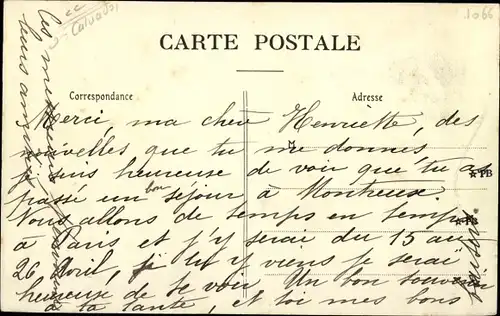 Calvados
1066
CARTE POSTALE
Correspondance
Adresse
Merci, ma chère Henriette, des
nouvelles que tu me donnes
suis heureuse de voir que tu as
passé un bon séjour à Montreux.
Nous allons de temps en temps
à Paris et j'y serai du 15 au
26 Avril, si tu y viens je serai
heureuse de te voir. Un bon souvenir
à ta tante, et toi mes bons